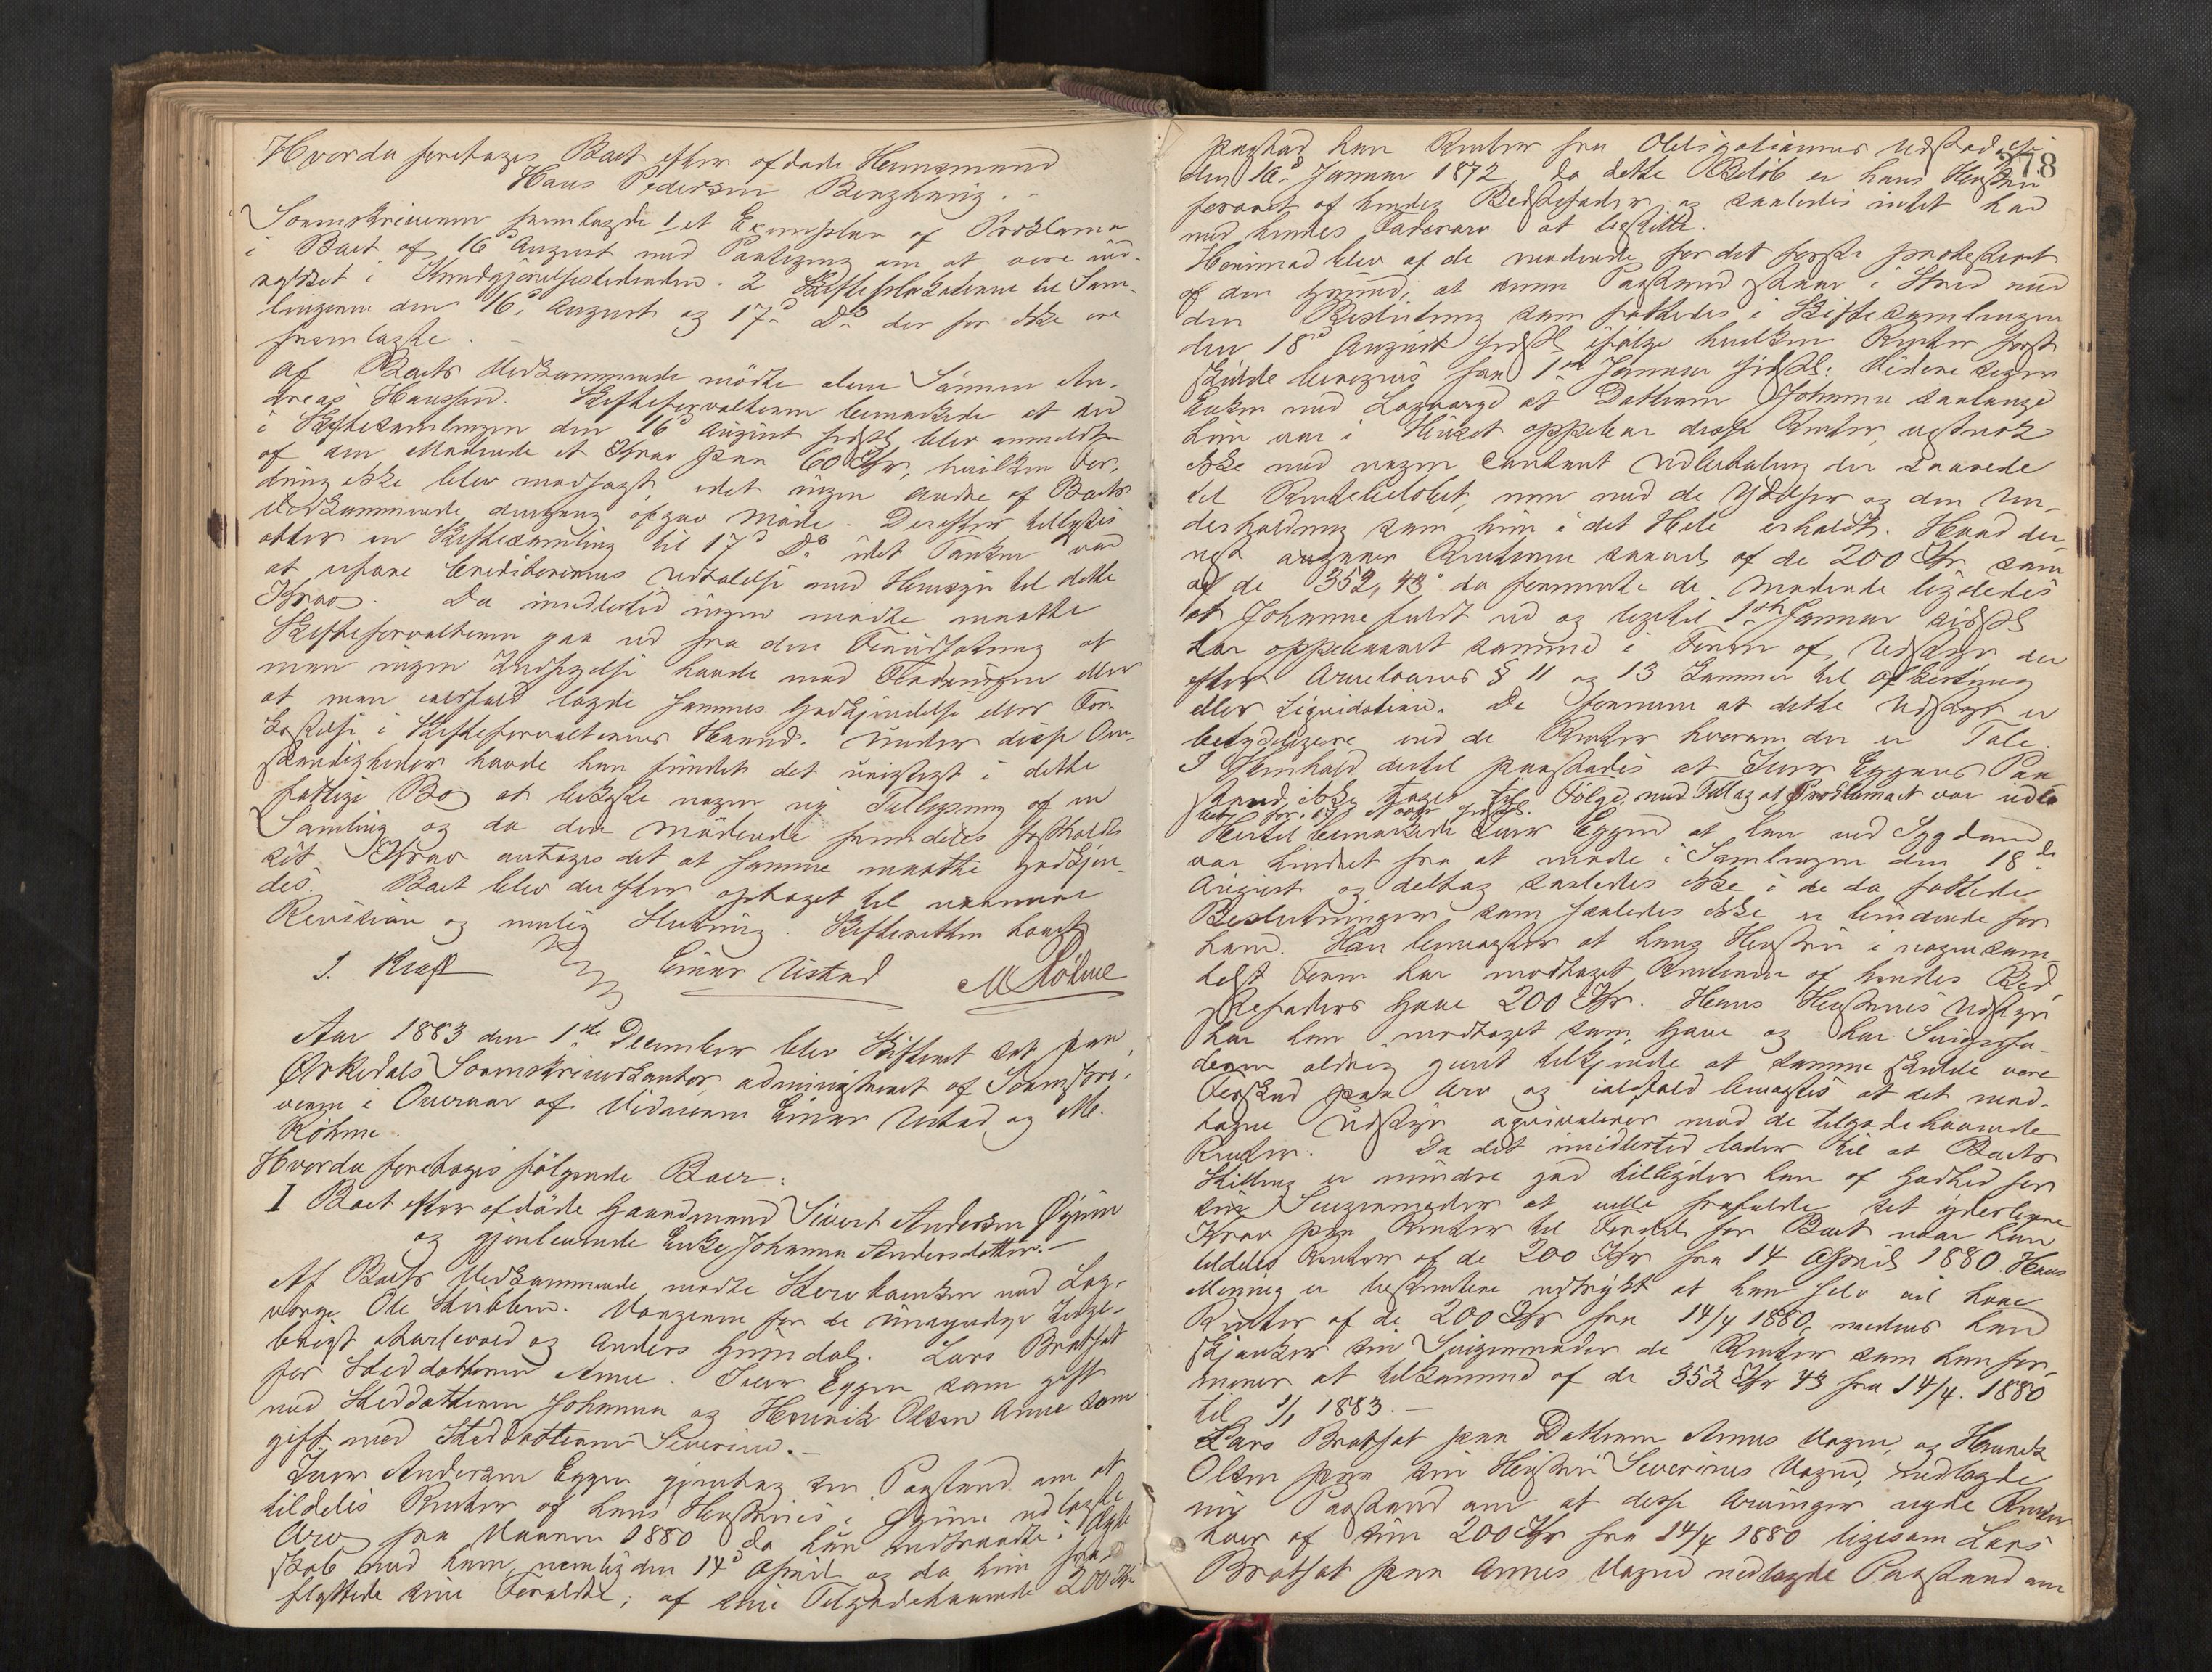 Hvorda foretages Boet efter afdøde Huusmand
Hans Pedersen Bergheing.
Sorenskriveren fremlagde 1 et Exemplar af Proklama
i Boet af 16 August med Paategning om at være ind-
rykket i Kundgjørelsestidenden. 2 Skifteplakaterne til Sam-
lingerne den 16d August og 17d Ds der før ikke ere
fremlagte.
Af Boets Vedkommende mødte alene Sønnen An-
dreas Hanssen. Skifteforvalteren bemærkede at ved
i Skiftesamlingen den 16d August sidstl. blev anmeldt
af den Mødende et Krav paa 60 Kr, hvilken For-
dring ikke blev modsagt, idet ingen andre af Boets
Vedkommende dengang afgav Møde. Derefter tillystes
atter en Skiftesamling til 17d Ds idet Tanken var
at erfare Creditorernes Udtalelse med Hensyn til dette
Krav. Da imidlertid ingen mødte maatte
Skifteforvalteren gaa ud fra den Forudsætning at
man ingen Indsigelse havde mod Fordringen eller
at man ialfald lagde sammes Godkjendelse eller For-
kastelse i Skifteforvalterens Haand. Under disse Om-
stændigheder havde han fundet det urigtigt i dette
fattige Bo at bekoste nogen ny Tillysning af en
Samling og da den Mødende fremdeles fastholdt
sit Krav antoges det at samme maatte godkjen-
des. Boet blev derefter optaget til nærmere
Revision og mulig Slutning. Skifteretten hævet
J. Kraft Einar Ustad M Köhne
Aar 1883 den 1ste December blev Skifteret sat paa
Orkedals Sorenskriverkontor administreret af Sorenskri-
veren i Overvær af Vidnerne Einar Ustad og M.
Köhne.
Hvorda foretoges følgende Boer:
I Boet efter afdøde Gaardmand Sivert Andersen Øyum
og gjenlevende Enke Johanna Andersdatter.
Af Boets Vedkommende mødte Stervboenken med Lag-
værge Ole Skubben. Værgerne for de Umyndige Inge-
brigt Aarlivold og Anders Grindal. Lars Bratset
for Steddatteren Anne. Iver Eggen som gift
med Steddatteren Johanna og Henrik Olsen Anne som
gift med Steddatteren Severine.
Iver Andersen Eggen gjentog sin Paastand om at
tildeles Renter af hans Hustrues i Øyum udlagte
Arv fra Vaaren 1880 da hun indtraadte i Ægte-
skab med ham, nemlig den 14d April og da hun fra-
flyttede sine Forældre; af sine Tilgodehavende 200 Kr
378
paastod han Renter fra Obligationens Udstedelse
den 16d Januar 1872, da dette Beløb er hans Hustru
foræret af hendes Bedstefader og saaledes intet har
med hendes Fadersarv at bestille.
Herimod blev af de mødende for det første protesteret
af den Grund, at denne Paastand staar i Strid med
den Beslutning som fattedes i Skiftesamlingen
den 18d August sidstl. ifølge hvilken Renter først
skulde beregnes fra 1ste Januar sidstl. Videre siger
Enken med Lagværge at Datteren Johanna saalænge
hun var i Huset oppebar disse Renter, vistnok
ikke med nogen contant Udbetaling der svarede
til Rentebeløbet, men med de Ydelser og den Un-
derholdning som hun i det Hele erholdt. Hvad der-
næst angaaer Renterne saavel af de 200 Kr som
af de 352, 43 da formente de mødende ligeledes
at Johanne fuldt ud og ligetil 1ste Januar sidstl
har oppebaaret samme i Form af Udstyr der
efter Arvelovens § 11 og 13 kommer til Afkortning
eller Liquidation. De formene at dette Udstyr er
betydeligere end de Renter hvorom der er Tale.
I Henhold dertil paastodes at Iver Eggens Paa-
stand ikke toges til Følge, med Tillæg at Proklamaet var udlø-
bet
Hertil bemærkede Iver Eggen at han ved Sygdom
var hindret fra at møde i Samlingen den 18de
August og deltog saaledes ikke i de da fattede
Beslutninger, som saaledes ikke er bindende for
ham. Han benægter at hans Hustru i nogen som-
helst Form har modtaget Renterne af hendes Bed-
stefaders Gave 200 Kr. Hans Hustrues Udstyr
har hun modtaget som Gave og har Svigerfa-
deren aldrig givet tilkjende at samme skulde være
Forskud paa Arv og ialfald benægtes at det mod-
tagne Udstyr æquivalerer mod de tilgodehavende
Renter. Da det imidlertid lader til at Boets
Stilling er mindre god tillægder han af Godhed for
sin Svigermoder at ville frafalde sit yderligere
Krav paa Renter til Fordel for Boet naar han
tildeles Renter af de 200 Kr fra 14 April 1880. Hans
Mening er bestemtere udtrykt at han selv vil have
Renter af de 200 Kr fra 14/4 1880, medens han
skjænker sin Svigermoder de Renter som han for-
mener at tilkomme af de 352 Kr 43 fra 14/4. 1880
til 1/1 1883.
Lars Bratset paa Datteren Annes Vegne, og Henrik
Olsen paa sin Hustru Severines Vegne, nedlagde
nu Paastand om at disse Arvinger nyde Renter
hver af sine 200 Kr fra 14/4 1880 ligesom Lars
Bratset paa Annes Vegne nedlagde Paastand om